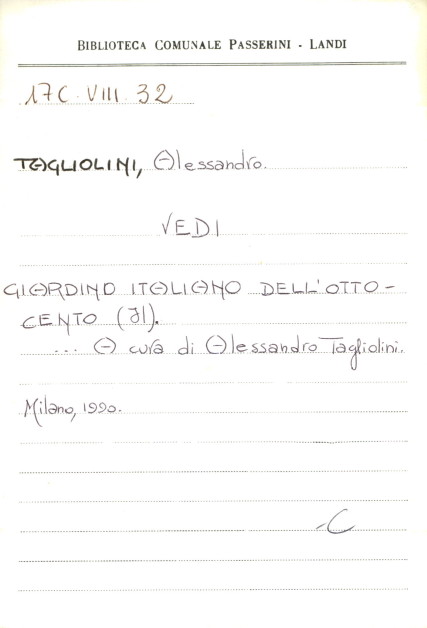 BIBLIOTECA COMUNALE PASSERINI - LANDI
17C VIII 32
TAGLIOLINI, Alessandro.
VEDI
GIARDINO ITALIANO DELL'OTTO-
CENTO (Il).
... A cura di Alessandro Tagliolini.
Milano, 1990.
-C